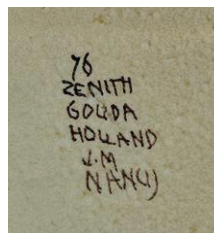 76
ZENITH
GOUDA
HOLLAND
J.M
NANCY